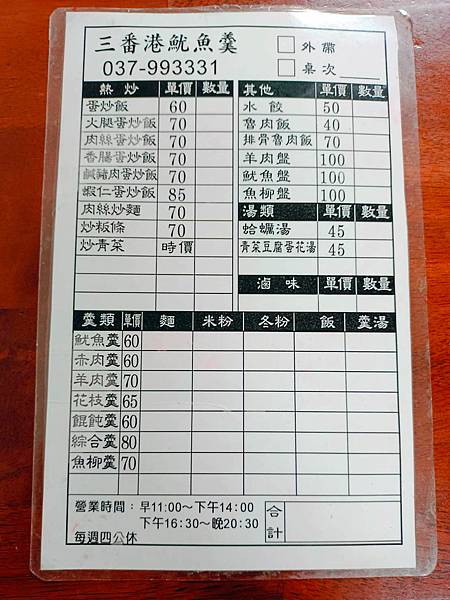 三番港魷魚羹
037-993331
□ 外帶
□ 桌次
熱炒 單價 數量
蛋炒飯 60
火腿蛋炒飯 70
肉絲蛋炒飯 70
香腸蛋炒飯 70
鹹豬肉蛋炒飯 70
蝦仁蛋炒飯 85
肉絲炒麵 70
炒粄條 70
炒青菜 時價
其他 單價 數量
水餃 50
魯肉飯 40
排骨魯肉飯 70
羊肉盤 100
魷魚盤 100
魚柳盤 100
湯類 單價 數量
蛤蠣湯 45
青菜豆腐蛋花湯 45
滷味 單價 數量
羹類 單價 麵 米粉 冬粉 飯 羹湯
魷魚羹 60
赤肉羹 60
羊肉羹 70
花枝羹 65
餛飩羹 60
綜合羹 80
魚柳羹 70
營業時間：早11:00～下午14:00
下午16:30～晚20:30
每週四公休
合計